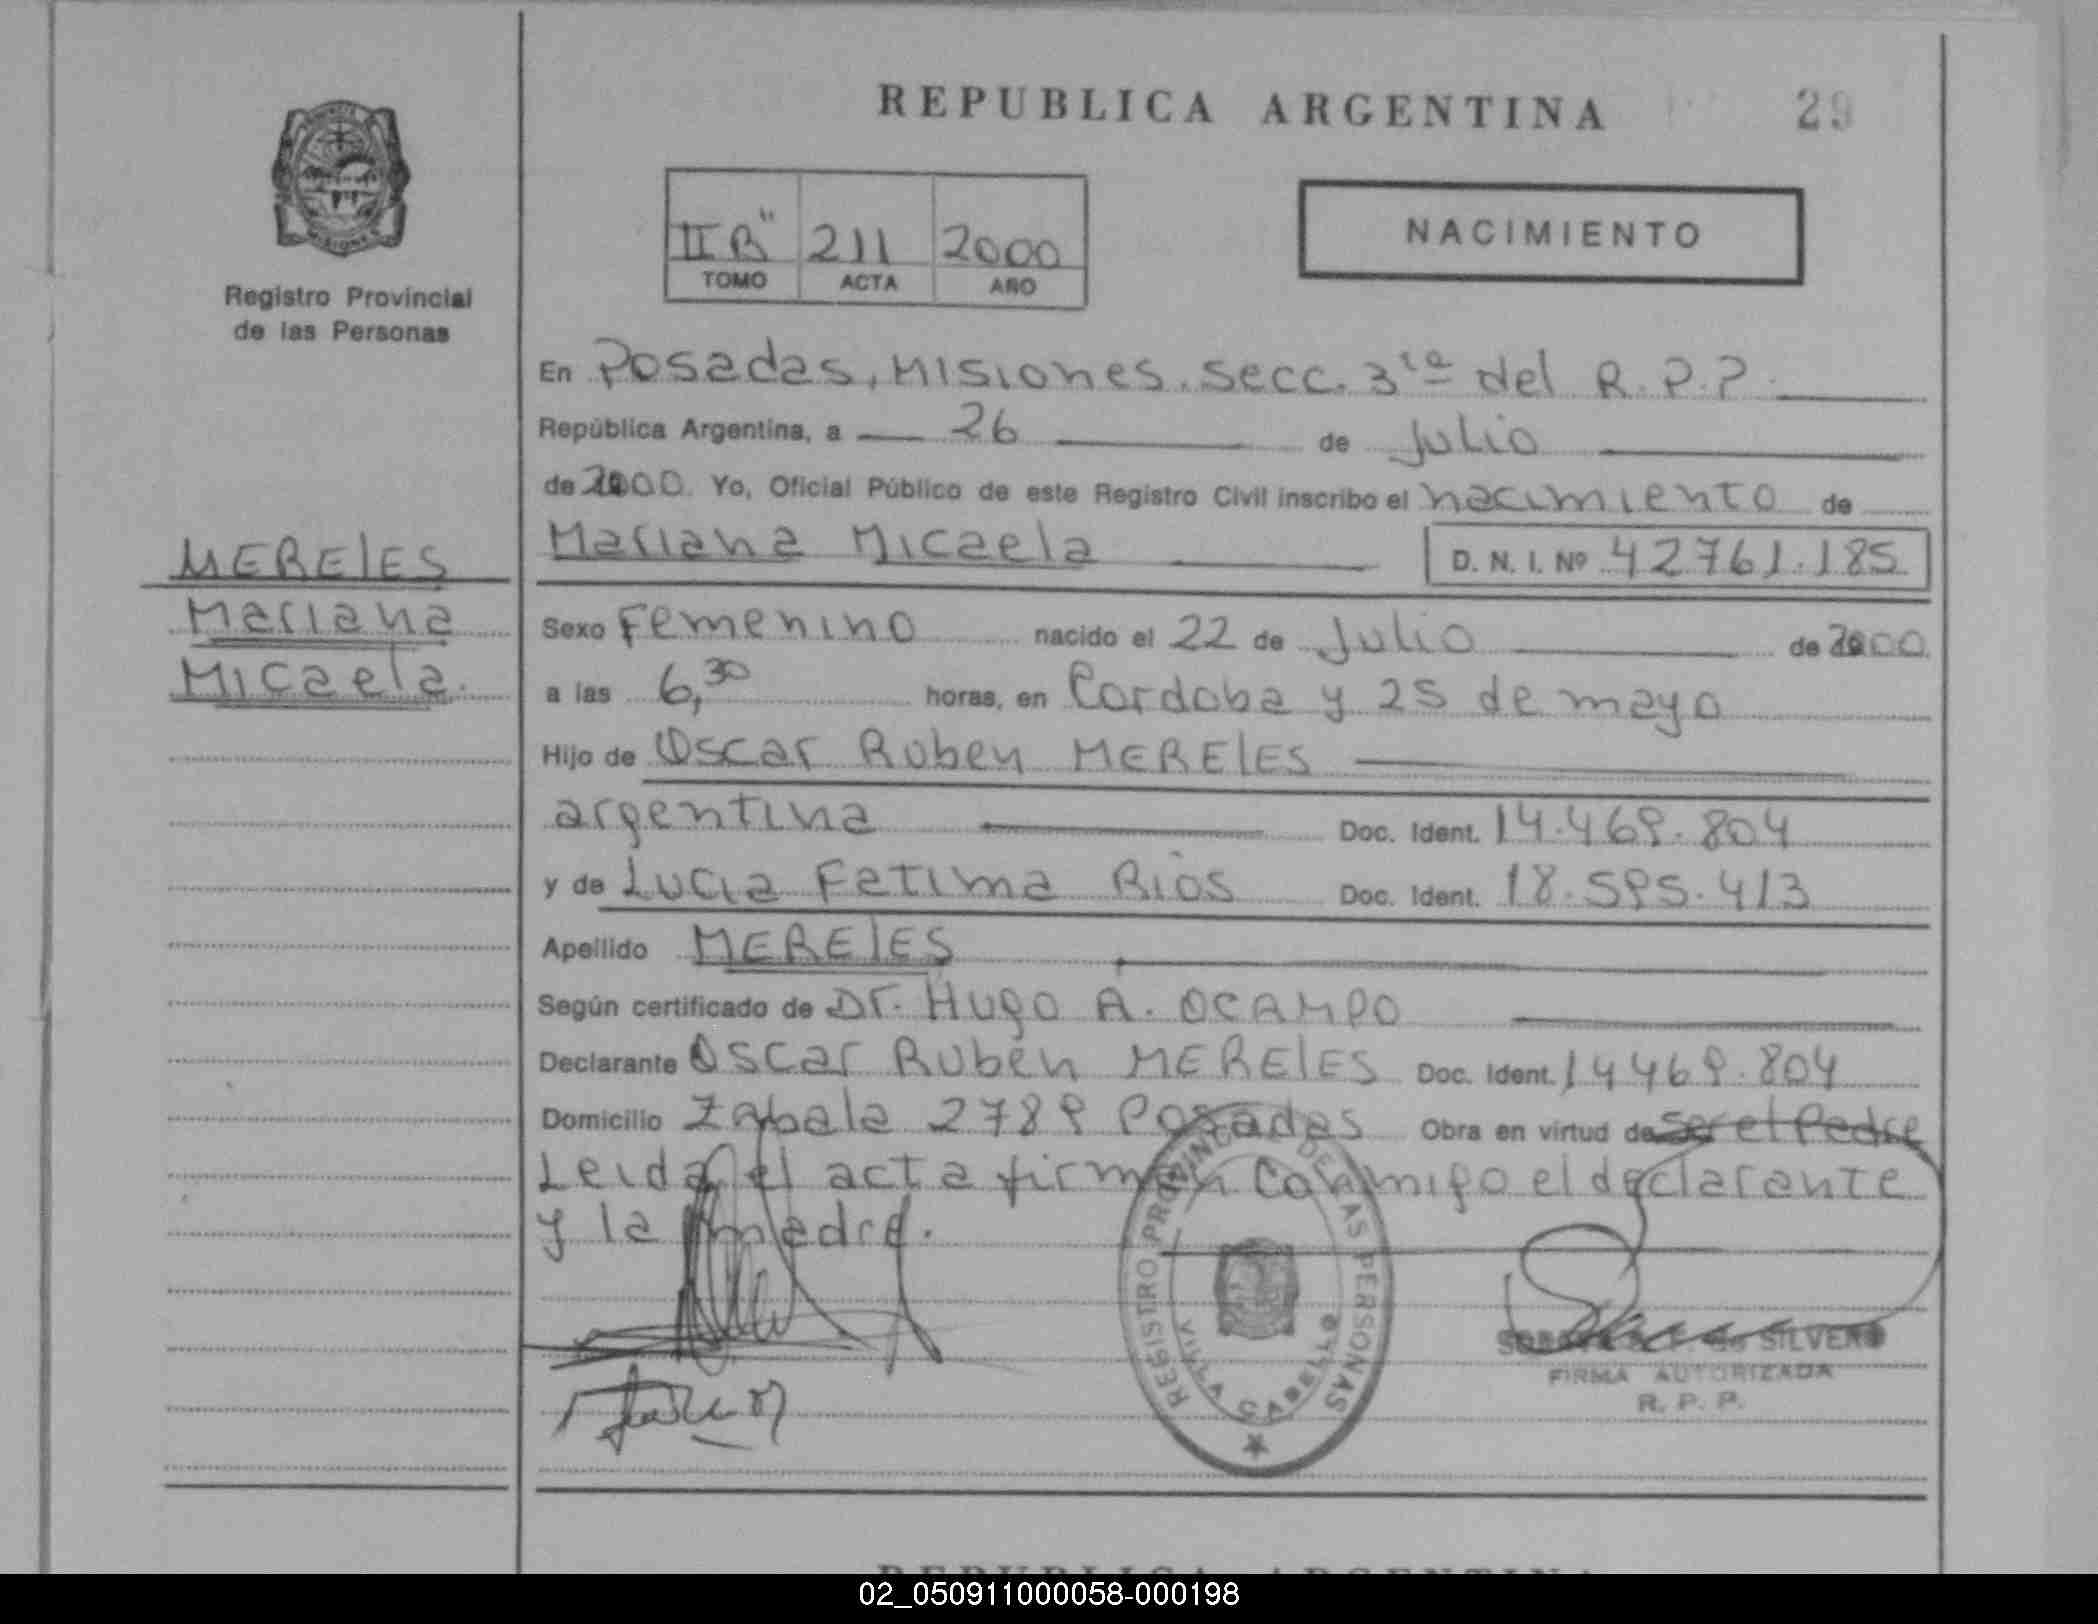 REPUBLICA ARGENTINA
29
II B" 211 2000
TOMO ACTA AÑO
NACIMIENTO
Registro Provincial
de las Personas
En Posadas, Misiones. Secc. 3ra del R.P.P.
República Argentina, a 26 de Julio
de 2000. Yo, Oficial Público de este Registro Civil inscribo el nacimiento de
Mariana Micaela D. N. I. Nº 42761.185
MERELES
Mariana
Micaela.
Sexo Femenino nacido el 22 de Julio de 2000
a las 6,30 horas, en Cordoba y 25 de mayo
Hijo de Oscar Ruben MERELES
argentina Doc. Ident. 14.469.804
y de Lucia Fatima Rios Doc. Ident. 18.595.413
Apellido MERELES
Según certificado de Dr. Hugo A. OCAMPO
Declarante Oscar Ruben MERELES Doc. Ident. 14469.804
Domicilio Zabala 2789 Posadas Obra en virtud de ser el Padre
Leida el acta firman conmigo el declarante
y la madre.
REGISTRO PROVINCIAL DE LAS PERSONAS
VILLA CABELLO
de SILVERO
FIRMA AUTORIZADA
R. P. P.
REPUBLICA ARGENTINA
02_050911000058-000198